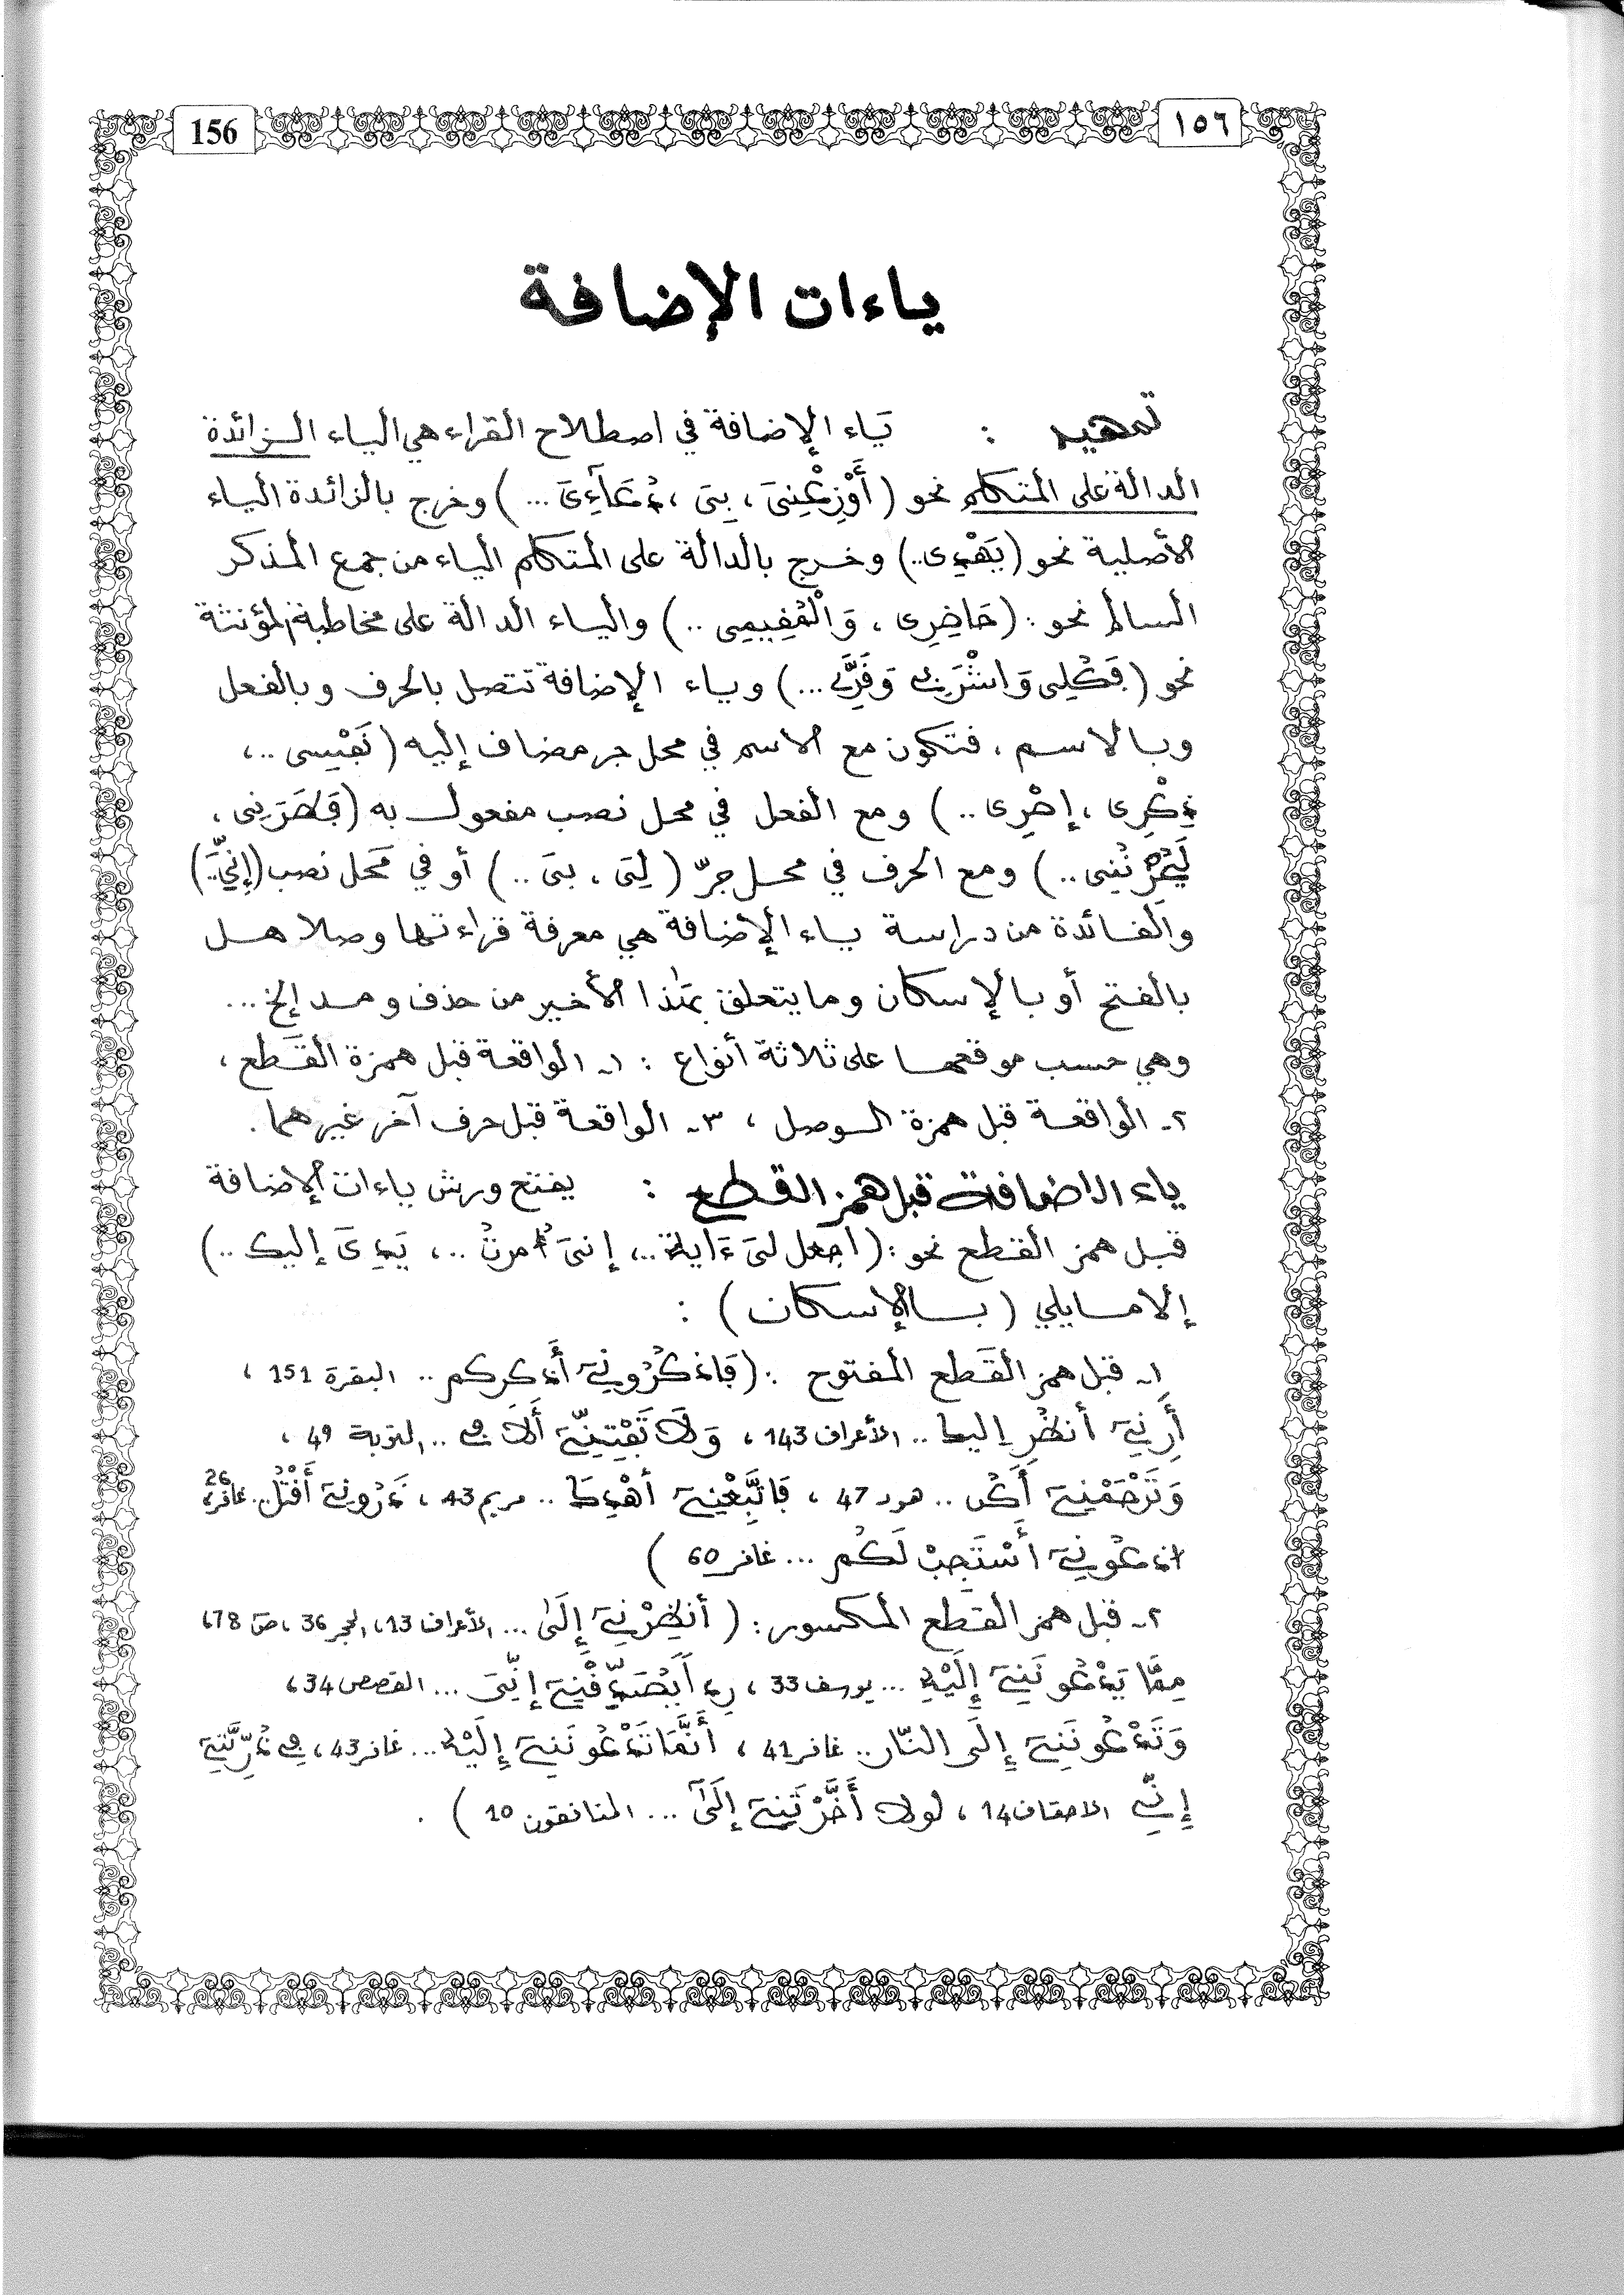 156
١٥٦
ياءات الإضافة
تمهيد : ياء الإضافة في اصطلاح القراء هي الياء الزائدة
الدالة على المتكلم نحو (أَوْزِعْنِىَ ، بِىَ ، دُعَآءِىَ ...) وخرج بالزائدة الياء
الأصلية نحو (يَهْدِى..) وخرج بالدالة على المتكلم الياء من جمع المذكر
السالم نحو : (حَاضِرِى ، وَالْمُقِيمِى ..) والياء الدالة على مخاطبة المؤنثة
نحو (فَكُلِى وَاشْرَبِى وَقَرِّى ...) وياء الإضافة تتصل بالحرف وبالفعل
وبالاسم ، فتكون مع الاسم في محل جر مضاف إليه (نَفْسِى ..،
ذِكْرِى ، إِصْرِى ..) ومع الفعل في محل نصب مفعول به (فَطَرَنِى ،
لَيُحْزِنُنِى ..) ومع الحرف في محل جرّ ( لِىَ ، بىَ ..) أو في مَحل نصب (إِنِّىَ..)
والفائدة من دراسة ياء الإضافة هي معرفة قراءتها وصلا هل
بالفتح أو بالإسكان وما يتعلق بهذا الأخير من حذف ومد إلخ ...
وهي حسب موقعها على ثلاثة أنواع : ١- الواقعة قبل همزة القَطع ،
٢- الواقعة قبل همزة الوصل ، ٣- الواقعة قبل حرف آخر غيرهما .
ياء الاضافة قبل همز القطع : يفتح ورش ياءات الإضافة
قبل همز القطع نحو : (اجعل لىَ ءَاية ..، إنىَ أُمرتُ ..، يَدِىَ إليك ..)
إلا ما يلي ( بالإسكان ) :
١- قبل همز القَطع المفتوح : (فَاذْكُرُونِىَ أَذكركم .. البقرة 151 ،
أَرِنِى أَنظُرِ إليك .. الأعراف 143 ، وَلَا تَفْتِنِّى أَلَا فِى .. التوبة 49 ،
وَتَرْحَمْنِى أَكُن .. هود 47 ، فَاتَّبِعْنِى أَهْدِكَ .. مريم 43 ، ذَرُونِى أَقْتُلْ .. غافر 26،
ادْعُونِى أَسْتَجِبْ لَكُم ... غافر 60 )
٢- قبل همز القَطع المكسور : ( أَنظِرْنِى إِلَى ... الأعراف 13، الحجر 36 ، ص 78،
مِمَّا يَدْعُونَنِى إِلَيْهِ ... يوسف 33 ، رِدًا يُصَدِّقْنِى إِنِّىَ ... القصص 34،
وَتَدْعُونَنِى إِلَى النَّار .. غافر 41 ، أَنَّمَا تَدْعُونَنِى إِلَيْهِ ... غافر 43 ، فِى ذُرِّيَّتِى
إِنِّى الاحقاف 14 ، لولا أَخَّرْتَنِى إِلَىٰ ... المنافقون 10 ) .